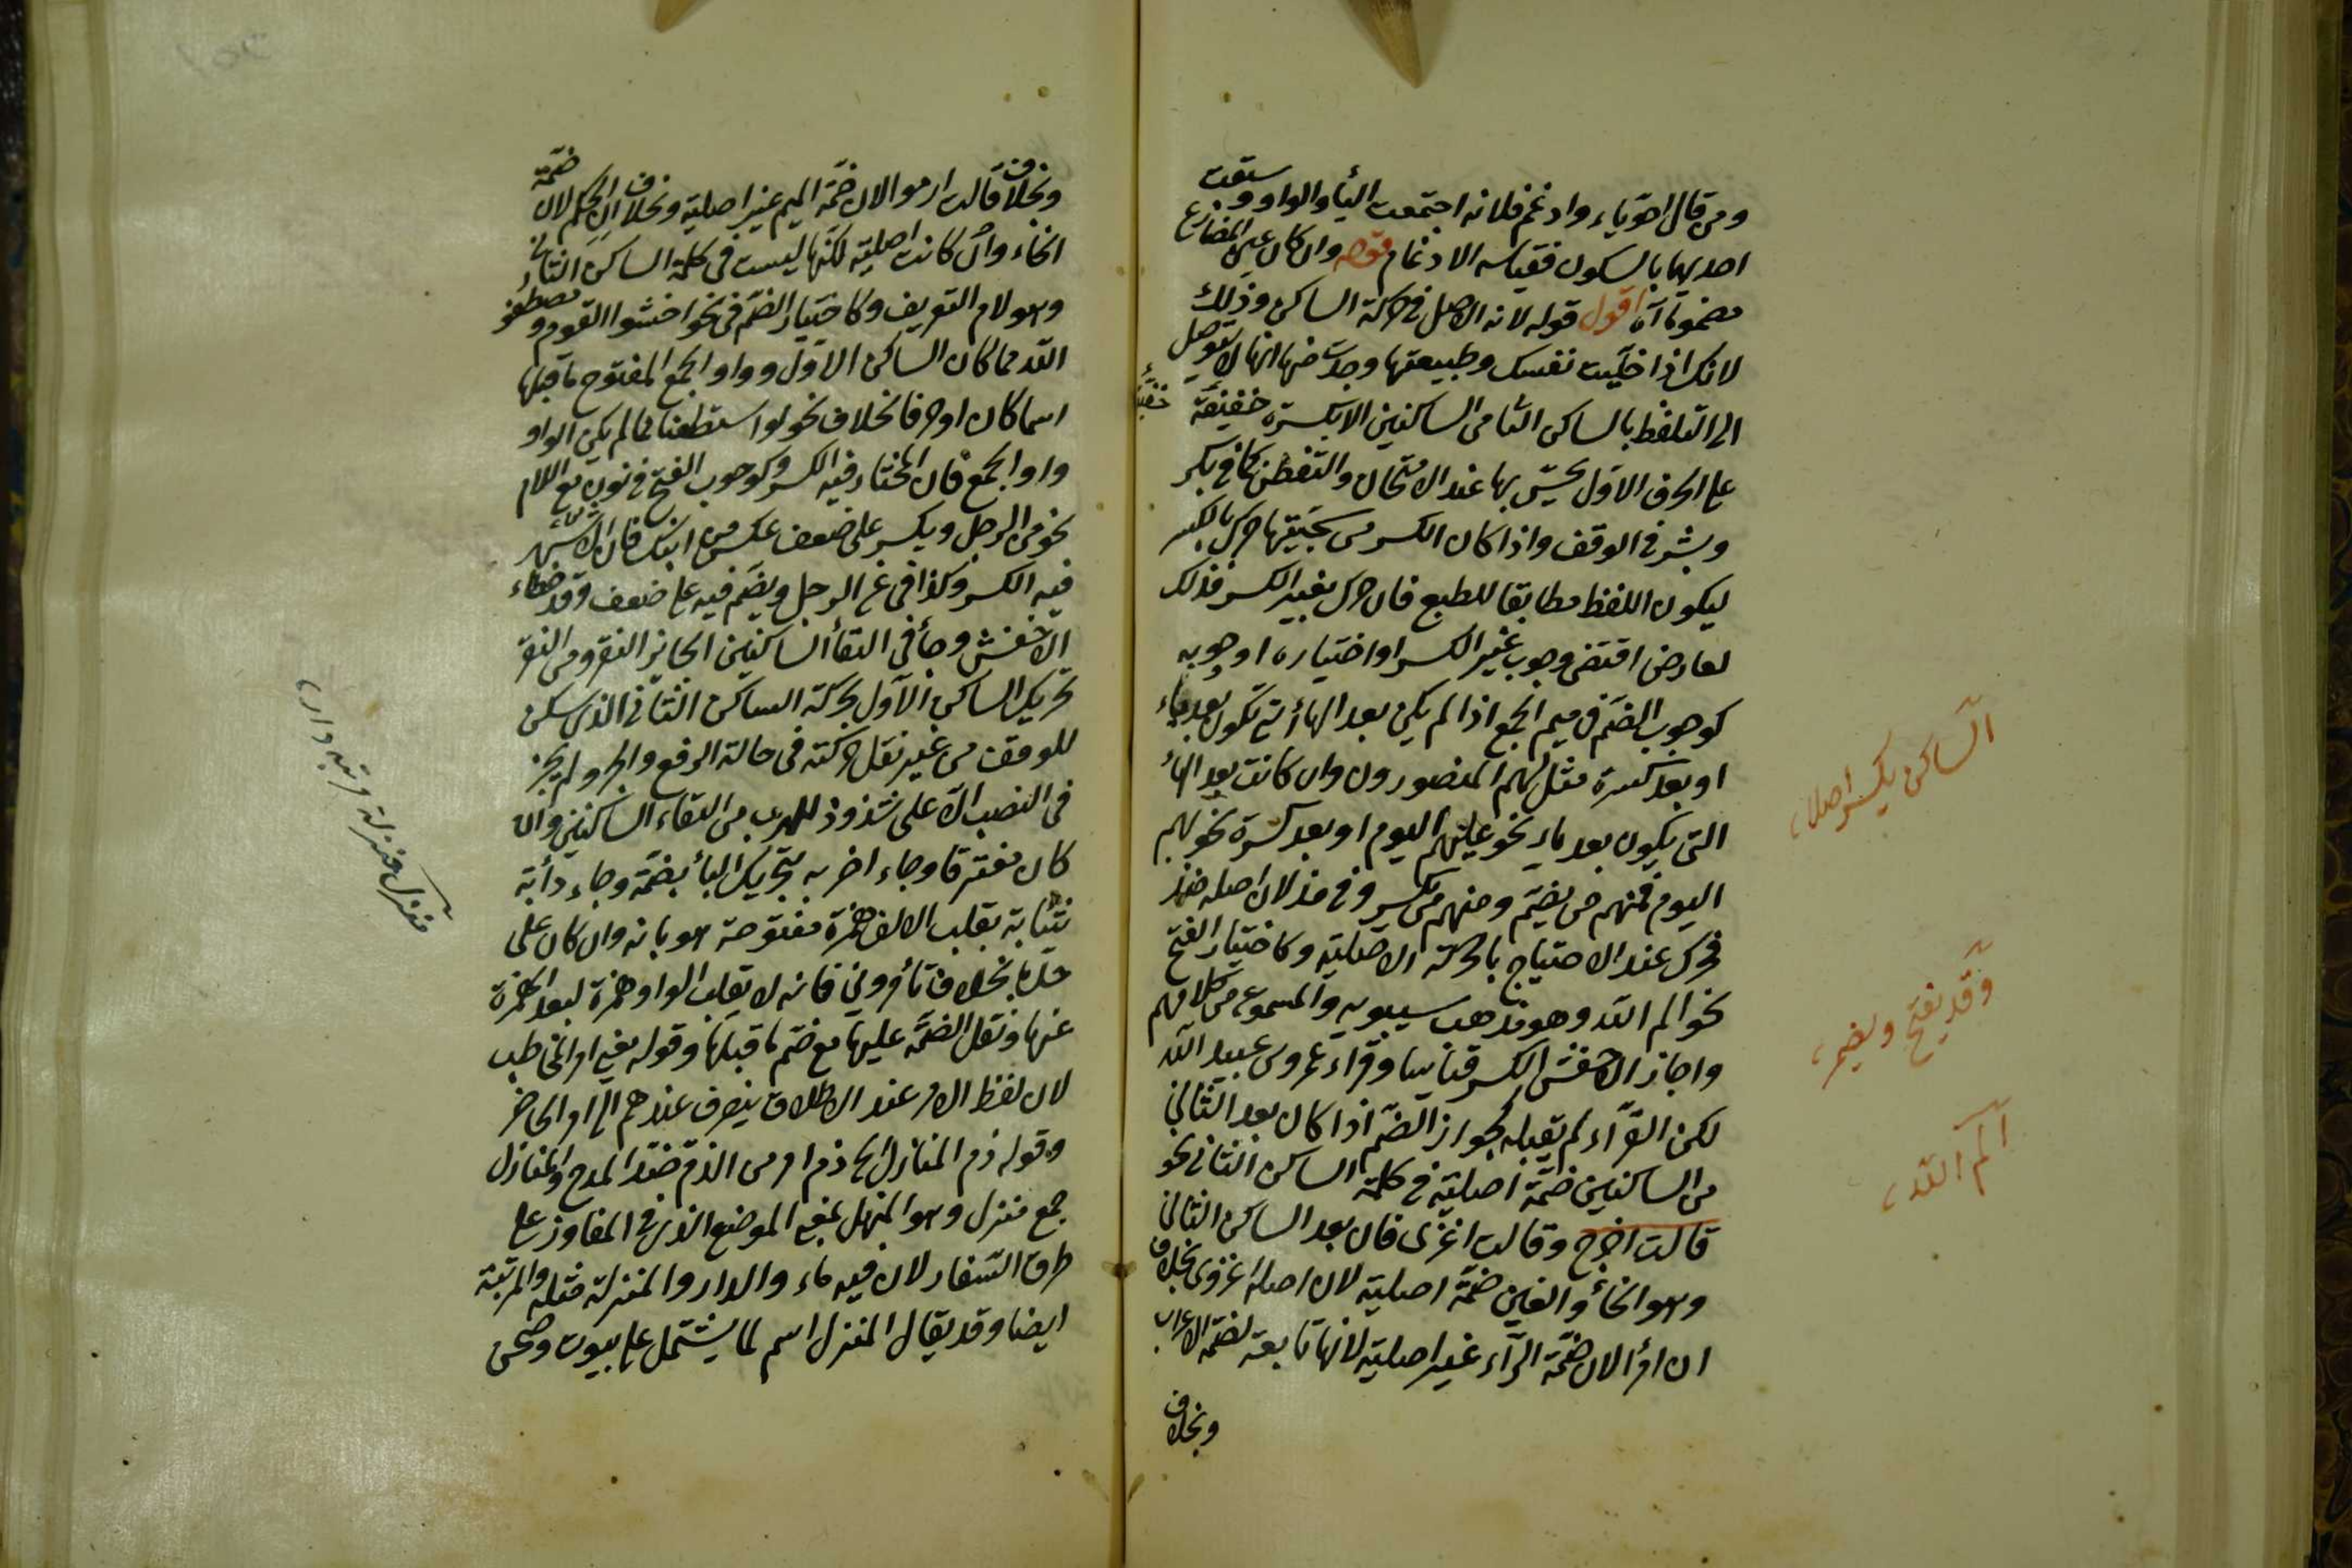 ومن قال احوياء وادغم فلانه اجتمعت الياء والواو وسبقت
احديهما بالسكون فقياسه الادغام قوله وان كان عين المضارع
مضموما آه اقول قوله لانه الاصل في حركة الساكن وذلك
لانك اذا خليت نفسك وطبيعتها وجدت منها انها لا تتوصل
الى التلفظ بالساكن الثا من الساكنين الا بكسرة خفيفة
على الحرف الاول يحس بها عند الامتحان والتفطن كما في بكر
وبشر في الوقف واذا كان الكسر من سجيتها حرك بالكسر
ليكون اللفظ مطابقا للطبع فان حرك بغير الكسر فذلك
لعارض اقتضى وجوب غير الكسر او اختياره او وجوبه
كوجوب الضم في ميم الجمع اذا لم يكن بعد الهاء تكون بعد ياء
او بعد كسرة مثل لهم المنصورون وان كانت بعد الهاء
التي يكون بعد ياء نحو عليهم اليوم او بعد كسرة نحو بهم
اليوم فمنهم من يضم ومنهم من يكسر وفي مذ لان اصله منذ
فحرك عند الاحتياج بالحركة الاصلية وكاختيار الفتح
نحو الم الله وهو مذهب سيبويه والمسموع من كلامهم
واجاز الاخفش الكسر قياسا وقراء عمرو بن عبيد الله
لكن القرآء لم يقبله كجواز الضم اذا كان بعد الثاني
من الساكنين ضمة اصلية في كلمة الساكن الثاني نحو
قالت اخرج وقالت اغزى فان بعد الساكن الثاني
وهو الخاء والغين ضمة اصلية لان اصله اغزوى بخلاف
ان امرؤ لان ضمة الراء غير اصلية لانها تابعة لضمة الاعراب
وبخلاف
الساكن يكسر اصلا
وقد يفتح ويضم
الم الله
وبخلاف قالت ارموا لان ضمة الميم غير اصلية وبخلاف ان الحكم لان ضمة
الحاء وان كانت اصلية لكنها ليست في كلمة الساكن الثاني
وهو لام التعريف وكاختيار الضم في نحو اخشوا القوم ومصطفو
الله مما كان الساكن الاول وواو الجمع المفتوح ما قبلها
اسما كان او حرفا بخلاف نحو لو استطعنا مما لم يكن الواو
واو الجمع فان المختار فيه الكسر وكوجوب الفتح في نون مع اللام
نحو من الرجل ويكسر على ضعف عكس من ابنك فان الاشهر
فيه الكسر وكذا في عن الرجل ويضم فيه على ضعف وقد خطاء
الاخفش وجاء في التقاء الساكنين الجائز النقر ومن النقر
تحريك الساكن الاول بحركة الساكن الثاني الذي سكن
للوقف من غير نقل حركته في حالة الرفع والجر ولم يجز
في النصب الا على شذوذ للهرب من التقاء الساكنين وان
كان مغتفرا وجاء اضربه بتحريك الباء بضمة وجاء دأبة
شأبة بقلب الالف همزة مفتوحة هربا منه وان كان على
حده بخلاف تأمروني فانه لا تقلب الواو همزة لبعد الهمزة
عنها وثقل الضمة عليها مع ضم ما قبلها وقوله يعني امر المخاطب
لان لفظ الامر عند الاطلاق ينصرف عندهم الى امر الحاضر
وقوله ذم المنازل الخ ذم امر من الذم ضد المدح والمنازل
جمع منزل وهو المنهل بمعنى الموضع الذي في المفاوز على
طرق السفار لان فيه ماء والدار والمنزلة مثله والمرتبة
ايضا وقد يقال المنزل اسم لما يشتمل على بيوت وصحن
منزل منزلة مرتبه دار